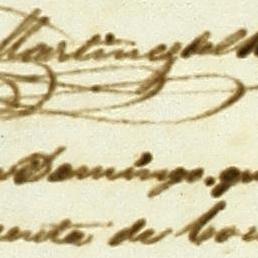 Martinez del
Domingo. qu
uenta de Cou